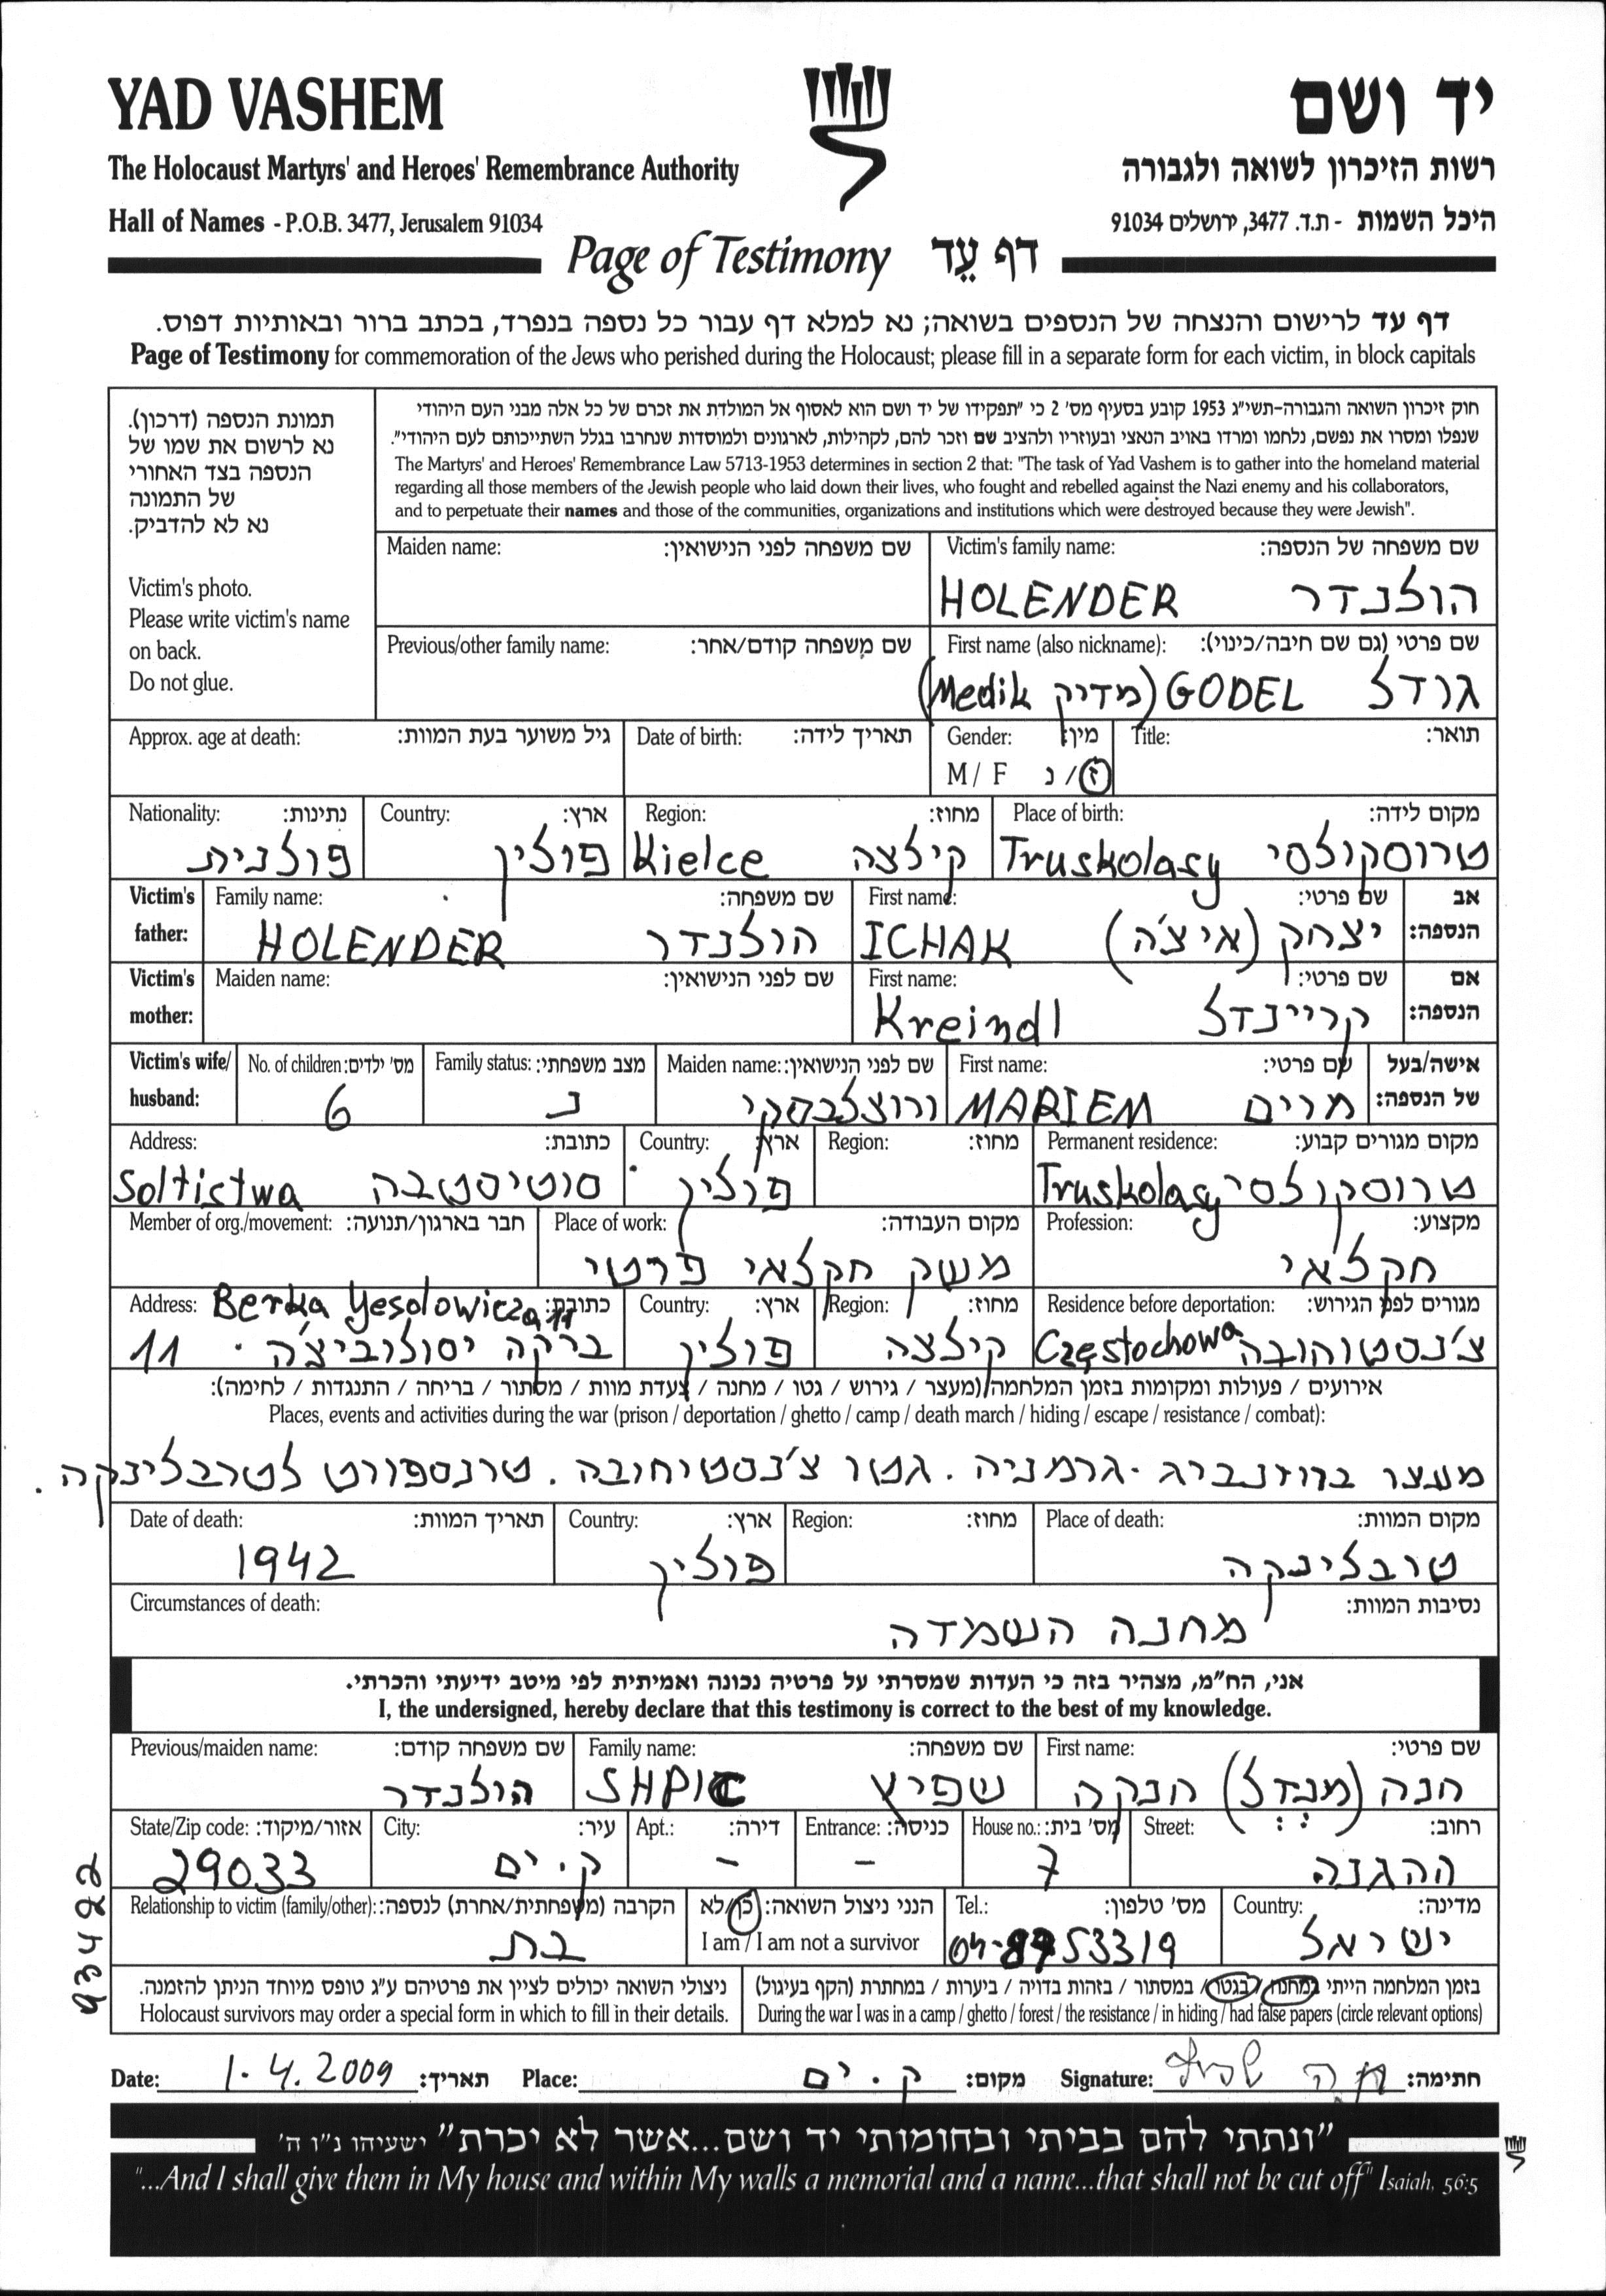 YAD VASHEM
יד ושם
The Holocaust Martyrs' and Heroes' Remembrance Authority
רשות הזיכרון לשואה ולגבורה
Hall of Names - P.O.B. 3477, Jerusalem 91034
היכל השמות - ת.ד. 3477, ירושלים 91034
Page of Testimony דף עֵד
דף עד לרישום והנצחה של הנספים בשואה; נא למלא דף עבור כל נספה בנפרד, בכתב ברור ובאותיות דפוס.
Page of Testimony for commemoration of the Jews who perished during the Holocaust; please fill in a separate form for each victim, in block capitals
תמונת הנספה (דרכון).
נא לרשום את שמו של
הנספה בצד האחורי
של התמונה
נא לא להדביק.
Victim's photo.
Please write victim's name
on back.
Do not glue.
חוק זיכרון השואה והגבורה-תשי"ג 1953 קובע בסעיף מס' 2 כי "תפקידו של יד ושם הוא לאסוף אל המולדת את זכרם של כל אלה מבני העם היהודי
שנפלו ומסרו את נפשם, נלחמו ומרדו באויב הנאצי ובעוזריו ולהציב שם וזכר להם, לקהילות, לארגונים ולמוסדות שנחרבו בגלל השתייכותם לעם היהודי".
The Martyrs' and Heroes' Remembrance Law 5713-1953 determines in section 2 that: "The task of Yad Vashem is to gather into the homeland material
regarding all those members of the Jewish people who laid down their lives, who fought and rebelled against the Nazi enemy and his collaborators,
and to perpetuate their names and those of the communities, organizations and institutions which were destroyed because they were Jewish".
Maiden name: שם משפחה לפני הנישואין:
Victim's family name: שם משפחה של הנספה:
HOLENDER הולנדר
Previous/other family name: שם משפחה קודם/אחר:
First name (also nickname): שם פרטי (גם שם חיבה/כינוי):
(Medik מדיק) GODEL גודל
Approx. age at death: גיל משוער בעת המוות:
Date of birth: תאריך לידה:
Gender: מין:
M / F ז / נ
Title: תואר:
Nationality: נתינות:
פולנית
Country: ארץ:
פולין
Region: מחוז:
Kielce קילצה
Place of birth: מקום לידה:
Truskolasy טרוסקולסי
Victim's father: אב הנספה:
Family name: שם משפחה:
HOLENDER הולנדר
First name: שם פרטי:
ICHAK יצחק (איצ'ה)
Victim's mother: אם הנספה:
Maiden name: שם לפני הנישואין:
First name: שם פרטי:
Kreindl קריינדל
Victim's wife/ husband: אישה/בעל של הנספה:
No. of children: מס' ילדים:
6
Family status: מצב משפחתי:
נ
Maiden name: שם לפני הנישואין:
ורוצלבסקי
First name: שם פרטי:
MARIEM מרים
Address: כתובת:
Soltistwa סוטיסטבה
Country: ארץ:
פולין
Region: מחוז:
Permanent residence: מקום מגורים קבוע:
Truskolasy טרוסקולסי
Member of org./movement: חבר בארגון/תנועה:
Place of work: מקום העבודה:
משק חקלאי פרטי
Profession: מקצוע:
חקלאי
Address: כתובת:
Berka Yesolowicza 11
ברקה יסולוביצ'ה 11
Country: ארץ:
פולין
Region: מחוז:
קילצה
Residence before deportation: מגורים לפני הגירוש:
Częstochowa צ'נסטוחובה
אירועים / פעולות ומקומות בזמן המלחמה (מעצר / גירוש / גטו / מחנה / צעדת מוות / מסתור / בריחה / התנגדות / לחימה):
Places, events and activities during the war (prison / deportation / ghetto / camp / death march / hiding / escape / resistance / combat):
מעצר ברוזנברג - גרמניה. גטו צ'נסטיחובה. טרנספורט לטרבלינקה.
Date of death: תאריך המוות:
1942
Country: ארץ:
פולין
Region: מחוז:
Place of death: מקום המוות:
טרבלינקה
Circumstances of death: נסיבות המוות:
מחנה השמדה
אני, הח"מ, מצהיר בזה כי העדות שמסרתי על פרטיה נכונה ואמיתית לפי מיטב ידיעתי והכרתי.
I, the undersigned, hereby declare that this testimony is correct to the best of my knowledge.
Previous/maiden name: שם משפחה קודם:
הולנדר
Family name: שם משפחה:
SHPIC שפיץ
First name: שם פרטי:
חנה (מנדל) חנקה
State/Zip code: אזור/מיקוד:
29033
City: עיר:
ק. ים
Apt.: דירה:
-
Entrance: כניסה:
-
House no.: מס' בית:
7
Street: רחוב:
ההגנה
Relationship to victim (family/other): הקרבה (משפחתית/אחרת) לנספה:
בת
הנני ניצול השואה: כן/לא
I am / I am not a survivor
Tel.: מס' טלפון:
04-8753319
Country: מדינה:
ישראל
ניצולי השואה יכולים לציין את פרטיהם ע"ג טופס מיוחד הניתן להזמנה.
Holocaust survivors may order a special form in which to fill in their details.
בזמן המלחמה הייתי במחנה / בגטו / במסתור / בזהות בדויה / ביערות / במחתרת (הקף בעיגול)
During the war I was in a camp / ghetto / forest / the resistance / in hiding / had false papers (circle relevant options)
Date: 1.4.2009 תאריך: Place: ק. ים מקום: Signature: חתימה:
"ונתתי להם בביתי ובחומותי יד ושם...אשר לא יכרת" ישעיהו נ"ו ה'
"...And I shall give them in My house and within My walls a memorial and a name...that shall not be cut off" Isaiah, 56:5